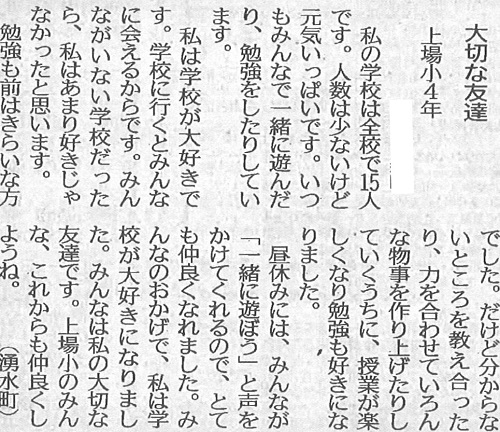 大切な友達
上場小４年
私の学校は全校で15人
です。人数は少ないけど
元気いっぱいです。いつ
もみんなで一緒に遊んだ
り、勉強をしたりしてい
ます。
私は学校が大好きで
す。学校に行くとみんな
に会えるからです。みん
ながいない学校だった
ら、私はあまり好きじゃ
なかったと思います。
勉強も前はきらいな方
でした。だけど分からな
いところを教え合った
り、力を合わせていろん
な物事を作り上げたりし
ていくうちに、授業が楽
しくなり勉強も好きにな
りました。
昼休みには、みんなが
「一緒に遊ぼう」と声を
かけてくれるので、とて
も仲良くなれました。み
んなのおかげで、私は学
校が大好きになりまし
た。みんなは私の大切な
友達です。上場小のみん
な、これからも仲良くし
ようね。（湧水町）